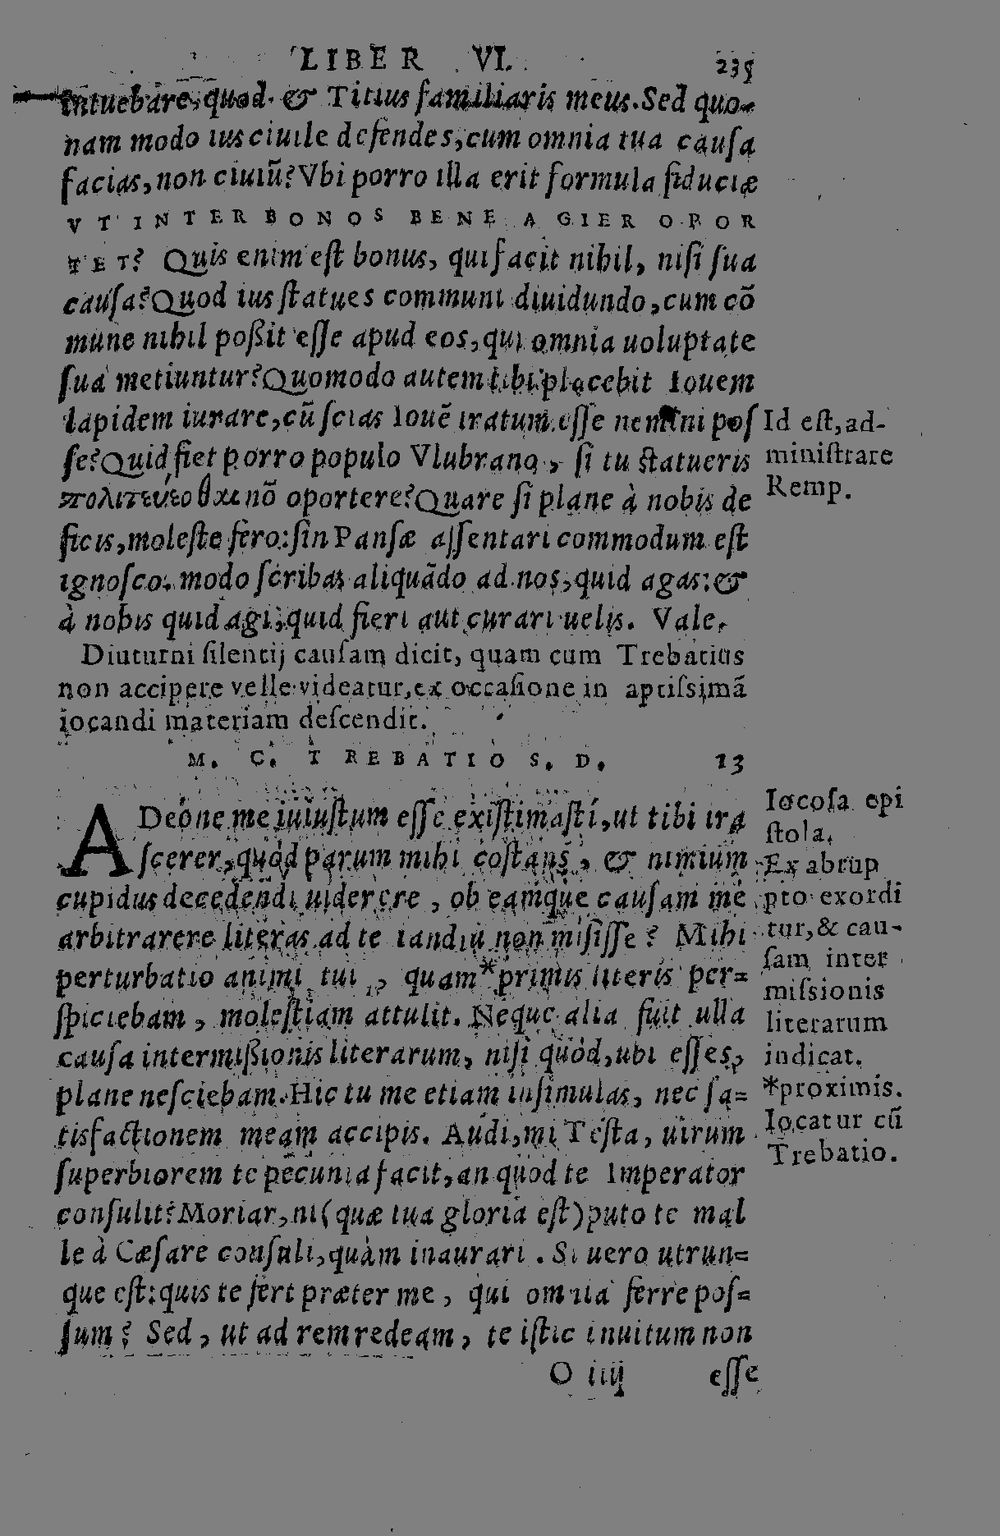 LIBER VI. 235
intuebare, quod & Titius familiaris meus. Sed quo-
nam modo ius ciuile defendes, cum omnia tua causa
facias, non ciuiũ? Vbi porro illa erit formula fiduciæ
VT INTER BONOS BENE AGIER OPOR
TET? Quis enim est bonus, qui facit nihil, nisi sua
causa? Quod ius statues communi diuidundo, cum cõ
mune nihil poßit esse apud eos, qui omnia uoluptate
sua metiuntur? Quomodo autem tibi placebit Iouem
lapidem iurare, cũ scias Iouẽ iratum esse nemini pos
se? Quid fiet porro populo Vlubrano, si tu statueris
πολιτεύεσθαι nõ oportere? Quare si plane à nobis de
ficis, moleste fero: sin Pansæ assentari commodum est
ignosco. modo scribas aliquãdo ad nos, quid agas: &
à nobis quid agi, quid fieri aut curari uelis. Vale.
Id est, ad-
ministrare
Remp.
Diuturni silentij causam dicit, quam cum Trebatius
non accipere velle videatur, ex occasione in aptissimã
iocandi materiam descendit.
M. C. TREBATIO S. D. 13
ADeóne me iniustum esse existimasti, ut tibi ira
scerer, quòd parum mihi constans, & nimium
cupidus decedendi uiderere, ob eamque causam me
arbitrarere literas ad te iandiu non misisse? Mihi
perturbatio animi tui, quam *primis literis per-
spiciebam, molestiam attulit. Neque alia fuit ulla
causa intermißionis literarum, nisi quòd, ubi esses,
plane nesciebam. Hic tu me etiam insimulas, nec sa-
tisfactionem meam accipis. Audi, mi Testa, utrum
superbiorem te pecunia facit, an quòd te Imperator
consulit? Moriar, ni (quæ tua gloria est) puto te mal
le à Cæsare consuli, quàm inaurari. Si uero utrun-
que est: quis te fert præter me, qui omnia ferre pos-
sum? Sed, ut ad rem redeam, te istic inuitum non
Iocosa epi
stola.
Ex abrup
pto exordi
tur, & cau-
sam inter
missionis
literarum
indicat.
*proximis.
Iocatur cũ
Trebatio.
O iiij esse